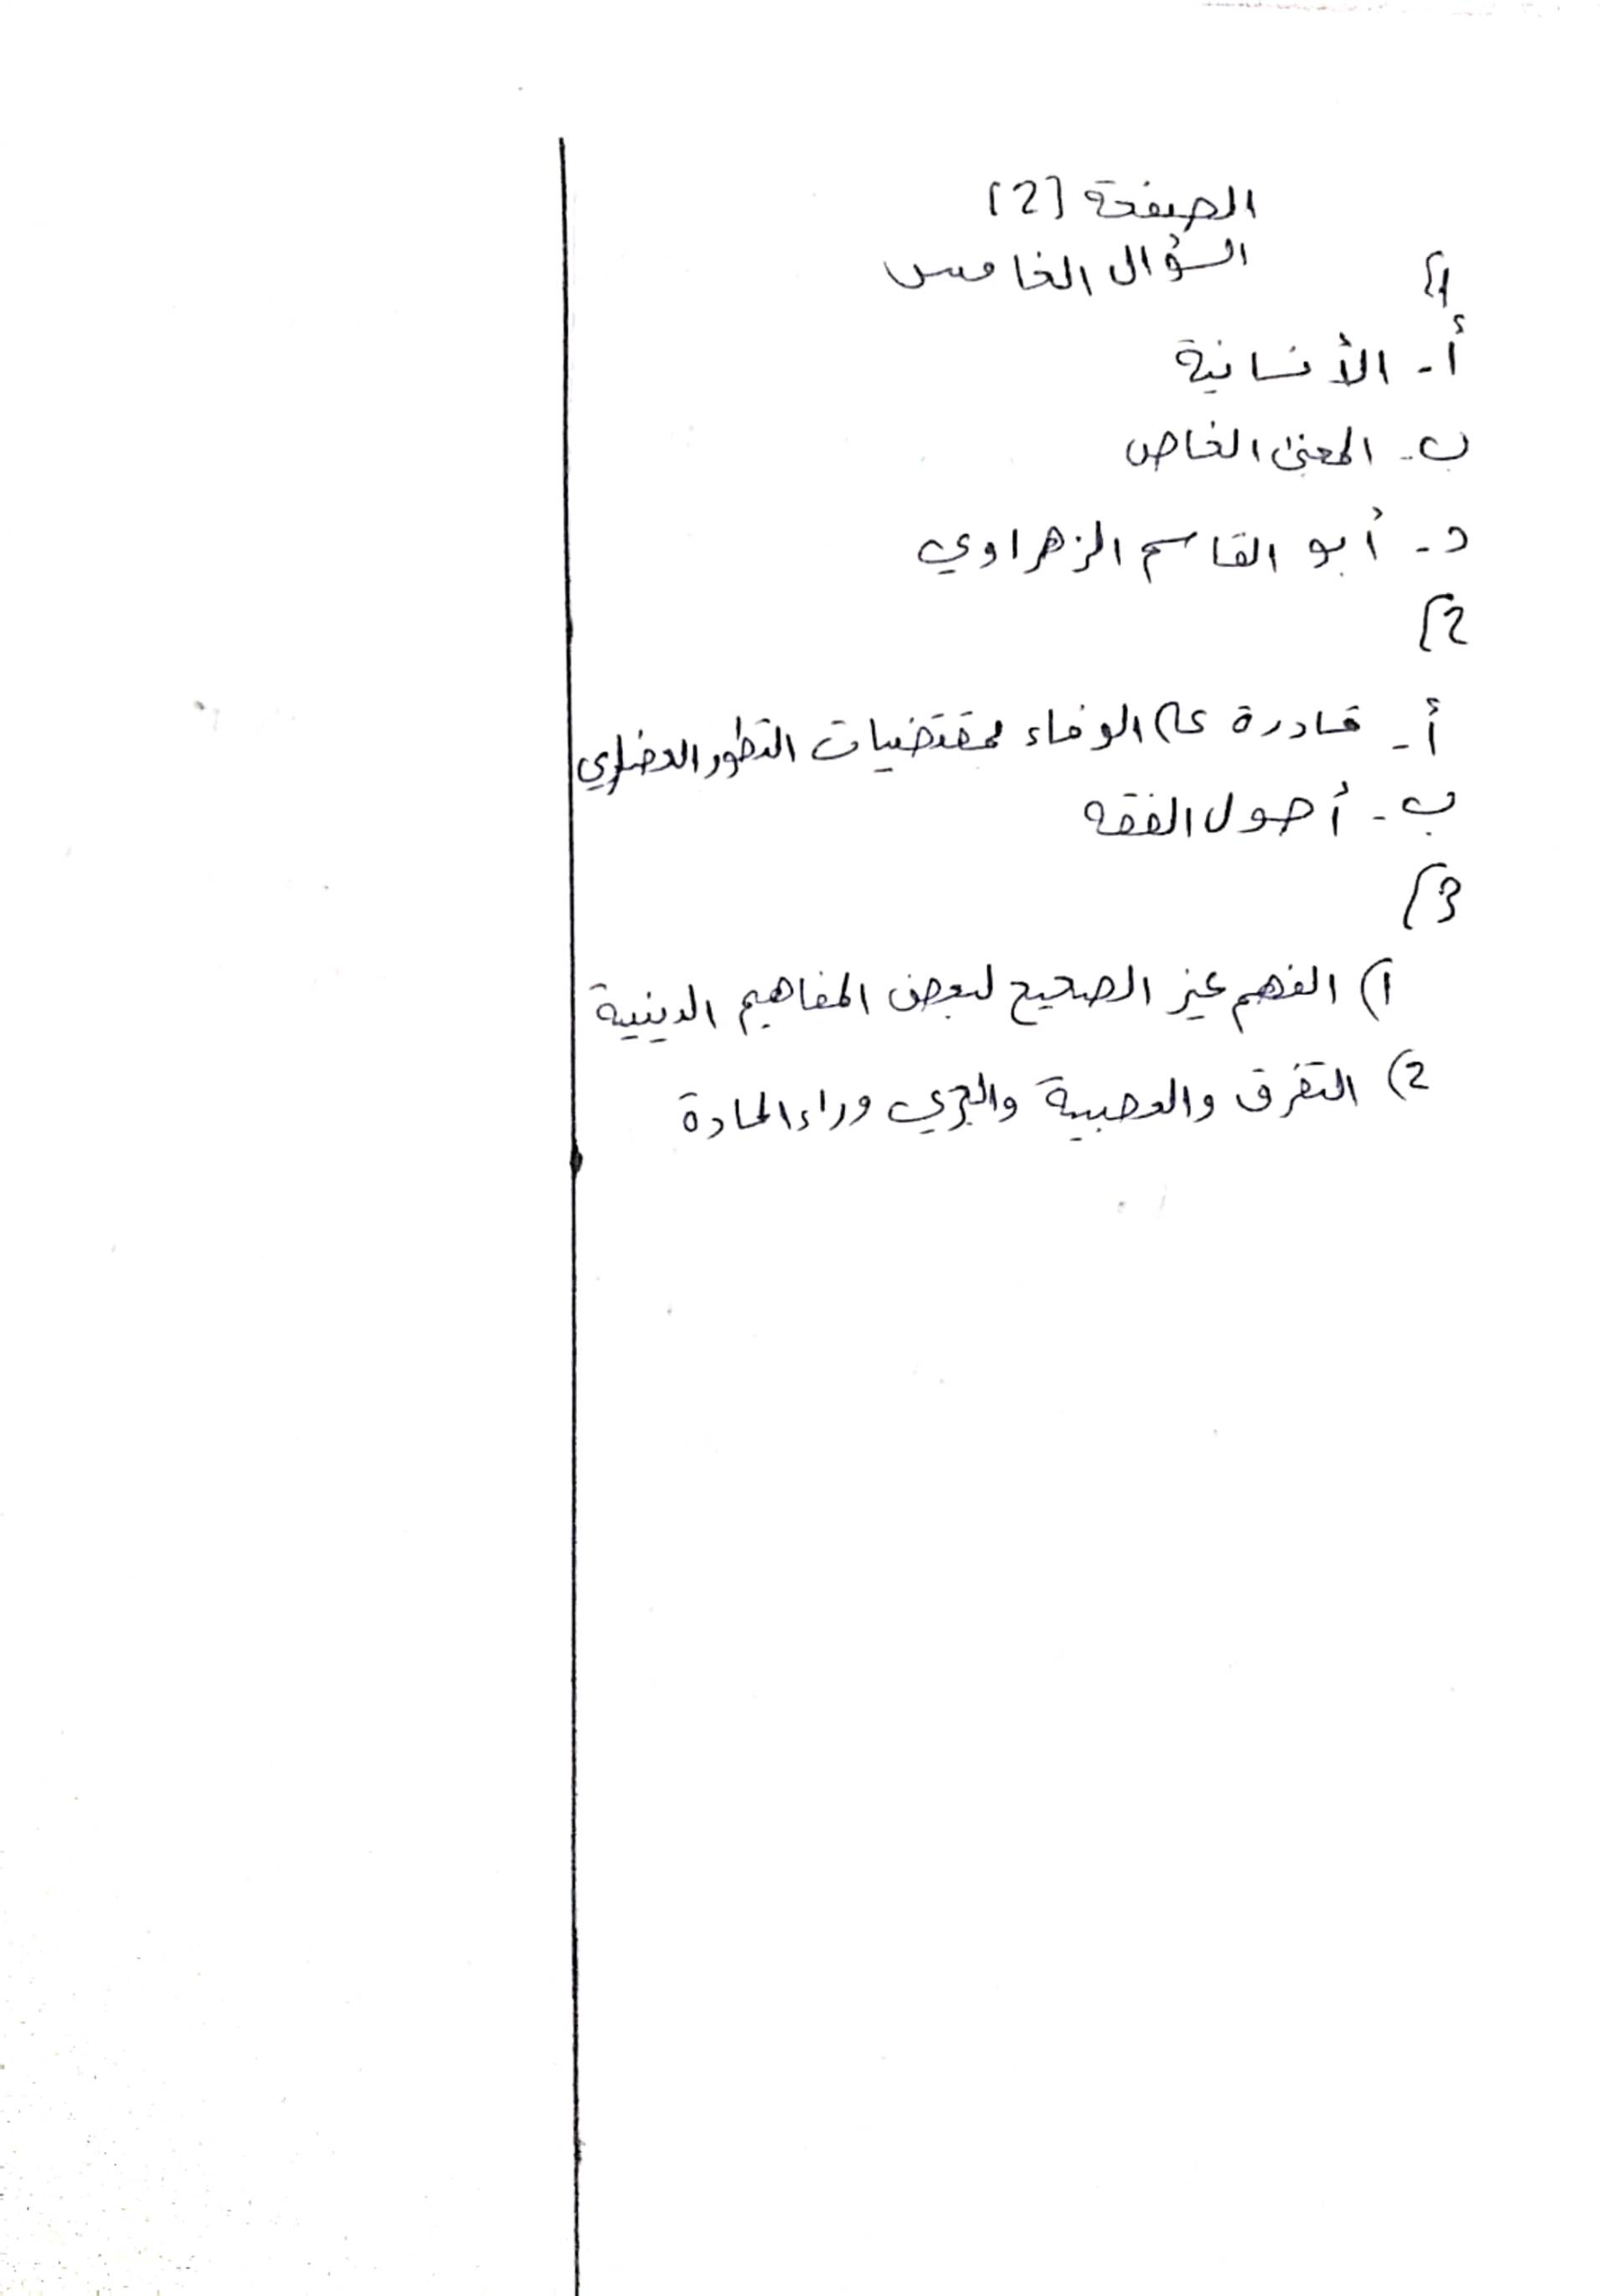 الصفحة [2]
السؤال الخامس
1)
أ- الأنسانية
ب- المعنى الخاص
د- أبو القاسم الزهراوي
2)
أ- قادرة على الوفاء لمقتضيات التطور الحضاري
ب- أصول الفقه
3)
1) الفهم غير الصحيح لبعض المفاهيم الدينية
2) التفرق والعصبية والجري وراء المادة